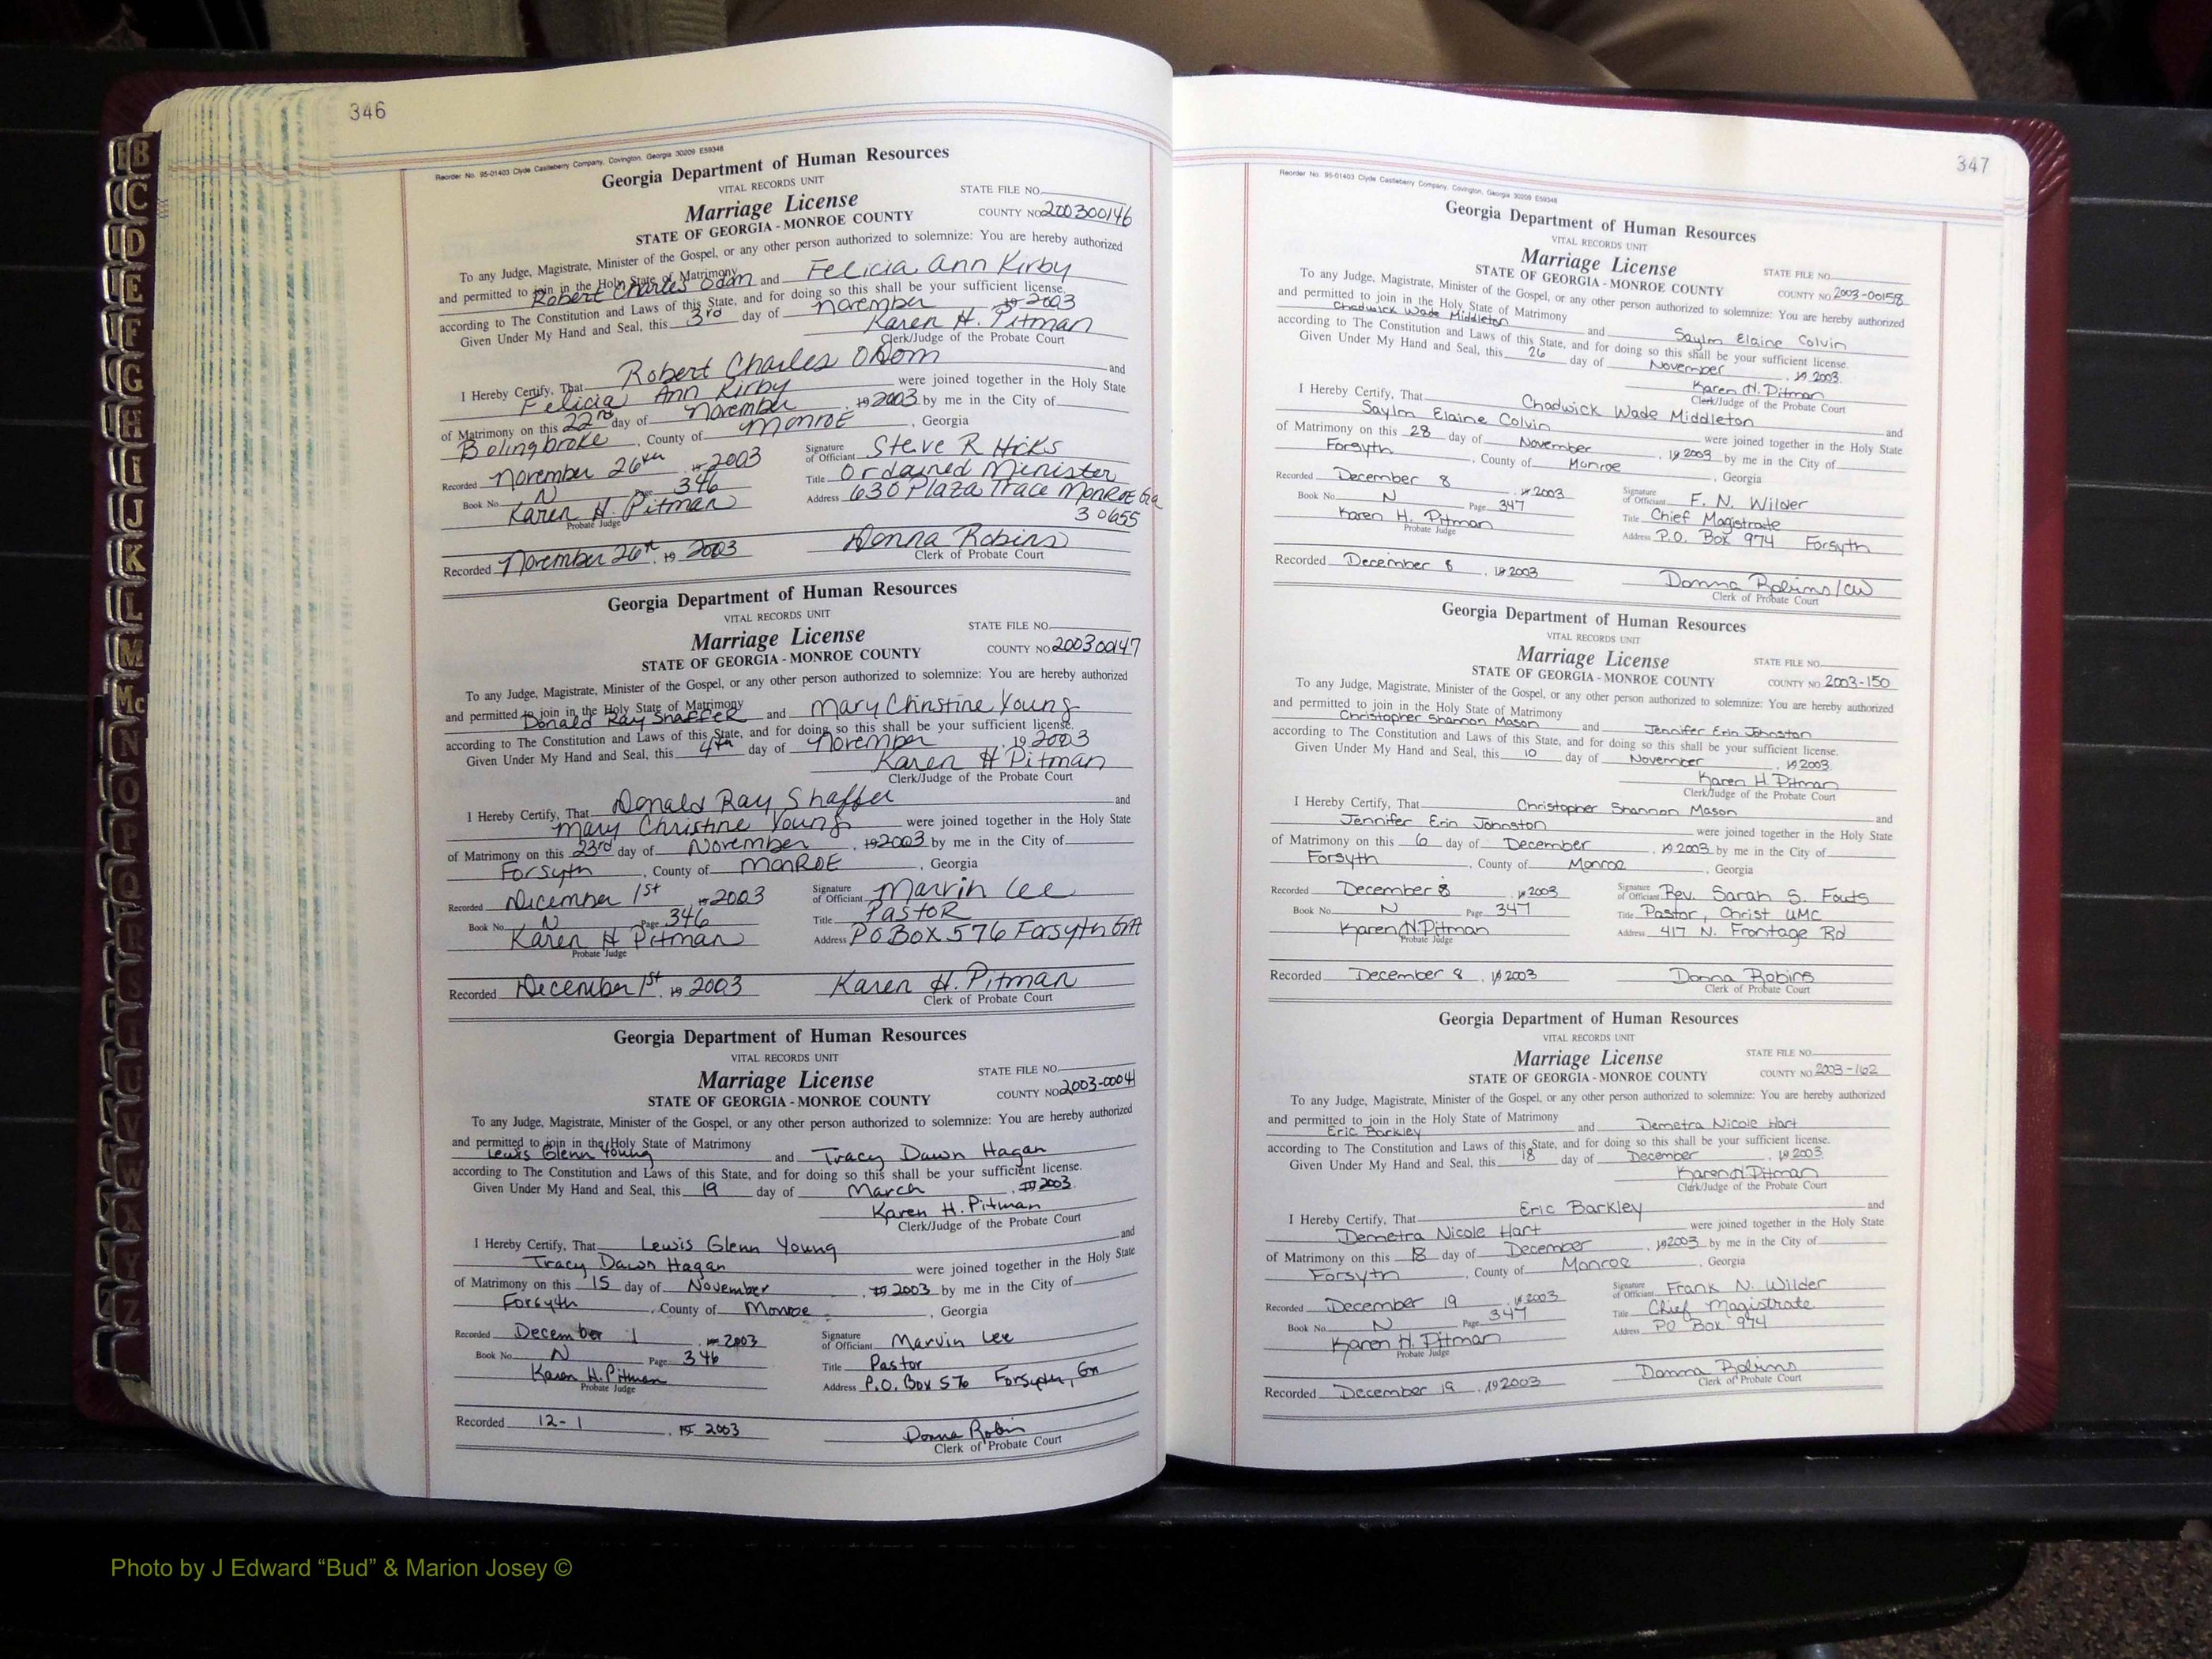 B
C
D
E
F
G
H
I
J
K
L
M
Mc
N
O
P
Q
R
S
T
U
V
W
X
Y
Z
346
Reorder No. 95-01403 Clyde Castleberry Company, Covington, Georgia 30209 E59348
Georgia Department of Human Resources
VITAL RECORDS UNIT
Marriage License
STATE FILE NO.
STATE OF GEORGIA - MONROE COUNTY
COUNTY NO. 200300146
To any Judge, Magistrate, Minister of the Gospel, or any other person authorized to solemnize: You are hereby authorized
and permitted to join in the Holy State of Matrimony
Robert Charles Odom and Felicia Ann Kirby
according to The Constitution and Laws of this State, and for doing so this shall be your sufficient license.
Given Under My Hand and Seal, this 3rd day of November, 19 2003
Karen H. Pitman
Clerk/Judge of the Probate Court
I Hereby Certify, That Robert Charles Odom and
Felicia Ann Kirby were joined together in the Holy State
of Matrimony on this 22nd day of November, 19 2003 by me in the City of
Bolingbroke, County of Monroe, Georgia
Recorded November 26th, 19 2003 Signature of Officiant Steve R Hicks
Book No. N Page 346 Title Ordained Minister
Karen H. Pitman Address 630 Plaza Trace Monroe Ga
Probate Judge 30655
Recorded November 26th, 19 2003 Donna Robins
Clerk of Probate Court
Georgia Department of Human Resources
VITAL RECORDS UNIT
Marriage License
STATE FILE NO.
STATE OF GEORGIA - MONROE COUNTY
COUNTY NO. 200300147
To any Judge, Magistrate, Minister of the Gospel, or any other person authorized to solemnize: You are hereby authorized
and permitted to join in the Holy State of Matrimony
Donald Ray Shaffer and Mary Christine Young
according to The Constitution and Laws of this State, and for doing so this shall be your sufficient license.
Given Under My Hand and Seal, this 4th day of November, 19 2003
Karen H Pitman
Clerk/Judge of the Probate Court
I Hereby Certify, That Donald Ray Shaffer and
Mary Christine Young were joined together in the Holy State
of Matrimony on this 23rd day of November, 19 2003 by me in the City of
Forsyth, County of Monroe, Georgia
Recorded December 1st, 19 2003 Signature of Officiant Marvin Lee
Book No. N Page 346 Title Pastor
Karen H Pitman Address P O Box 576 Forsyth GA
Probate Judge
Recorded December 1st, 19 2003 Karen H. Pitman
Clerk of Probate Court
Georgia Department of Human Resources
VITAL RECORDS UNIT
Marriage License
STATE FILE NO.
STATE OF GEORGIA - MONROE COUNTY
COUNTY NO. 2003-0041
To any Judge, Magistrate, Minister of the Gospel, or any other person authorized to solemnize: You are hereby authorized
and permitted to join in the Holy State of Matrimony
Lewis Glenn Young and Tracy Dawn Hagan
according to The Constitution and Laws of this State, and for doing so this shall be your sufficient license.
Given Under My Hand and Seal, this 19 day of March, 19 2003
Karen H. Pitman
Clerk/Judge of the Probate Court
I Hereby Certify, That Lewis Glenn Young and
Tracy Dawn Hagan were joined together in the Holy State
of Matrimony on this 15 day of November, 19 2003 by me in the City of
Forsyth, County of Monroe, Georgia
Recorded December 1, 19 2003 Signature of Officiant Marvin Lee
Book No. N Page 346 Title Pastor
Karen H. Pitman Address P.O. Box 576 Forsyth, Ga
Probate Judge
Recorded 12-1, 19 2003 Donna Robin
Clerk of Probate Court
347
Reorder No. 95-01403 Clyde Castleberry Company, Covington, Georgia 30209 E59348
Georgia Department of Human Resources
VITAL RECORDS UNIT
Marriage License
STATE FILE NO.
STATE OF GEORGIA - MONROE COUNTY
COUNTY NO. 2003-00158
To any Judge, Magistrate, Minister of the Gospel, or any other person authorized to solemnize: You are hereby authorized
and permitted to join in the Holy State of Matrimony
Chadwick Wade Middleton and Saylm Elaine Colvin
according to The Constitution and Laws of this State, and for doing so this shall be your sufficient license.
Given Under My Hand and Seal, this 26 day of November, 19 2003
Karen H. Pitman
Clerk/Judge of the Probate Court
I Hereby Certify, That Chadwick Wade Middleton and
Saylm Elaine Colvin were joined together in the Holy State
of Matrimony on this 28 day of November, 19 2003 by me in the City of
Forsyth, County of Monroe, Georgia
Recorded December 8, 19 2003 Signature of Officiant F. N. Wilder
Book No. N Page 347 Title Chief Magistrate
Karen H. Pitman Address P.O. Box 974 Forsyth
Probate Judge
Recorded December 8, 19 2003 Donna Robins/CW
Clerk of Probate Court
Georgia Department of Human Resources
VITAL RECORDS UNIT
Marriage License
STATE FILE NO.
STATE OF GEORGIA - MONROE COUNTY
COUNTY NO. 2003-150
To any Judge, Magistrate, Minister of the Gospel, or any other person authorized to solemnize: You are hereby authorized
and permitted to join in the Holy State of Matrimony
Christopher Shannon Mason and Jennifer Erin Johnston
according to The Constitution and Laws of this State, and for doing so this shall be your sufficient license.
Given Under My Hand and Seal, this 10 day of November, 19 2003
Karen H. Pitman
Clerk/Judge of the Probate Court
I Hereby Certify, That Christopher Shannon Mason and
Jennifer Erin Johnston were joined together in the Holy State
of Matrimony on this 6 day of December, 19 2003 by me in the City of
Forsyth, County of Monroe, Georgia
Recorded December 8, 19 2003 Signature of Officiant Rev. Sarah S. Fouts
Book No. N Page 347 Title Pastor, Christ UMC
Karen H. Pitman Address 417 N. Frontage Rd
Probate Judge
Recorded December 8, 19 2003 Donna Robins
Clerk of Probate Court
Georgia Department of Human Resources
VITAL RECORDS UNIT
Marriage License
STATE FILE NO.
STATE OF GEORGIA - MONROE COUNTY
COUNTY NO. 2003-162
To any Judge, Magistrate, Minister of the Gospel, or any other person authorized to solemnize: You are hereby authorized
and permitted to join in the Holy State of Matrimony
Eric Barkley and Demetra Nicole Hart
according to The Constitution and Laws of this State, and for doing so this shall be your sufficient license.
Given Under My Hand and Seal, this 18 day of December, 19 2003
Karen H Pitman
Clerk/Judge of the Probate Court
I Hereby Certify, That Eric Barkley and
Demetra Nicole Hart were joined together in the Holy State
of Matrimony on this 18 day of December, 19 2003 by me in the City of
Forsyth, County of Monroe, Georgia
Recorded December 19, 19 2003 Signature of Officiant Frank N. Wilder
Book No. N Page 347 Title Chief Magistrate
Karen H. Pitman Address PO Box 974
Probate Judge
Recorded December 19, 19 2003 Donna Robins
Clerk of Probate Court
Photo by J Edward “Bud” & Marion Josey ©